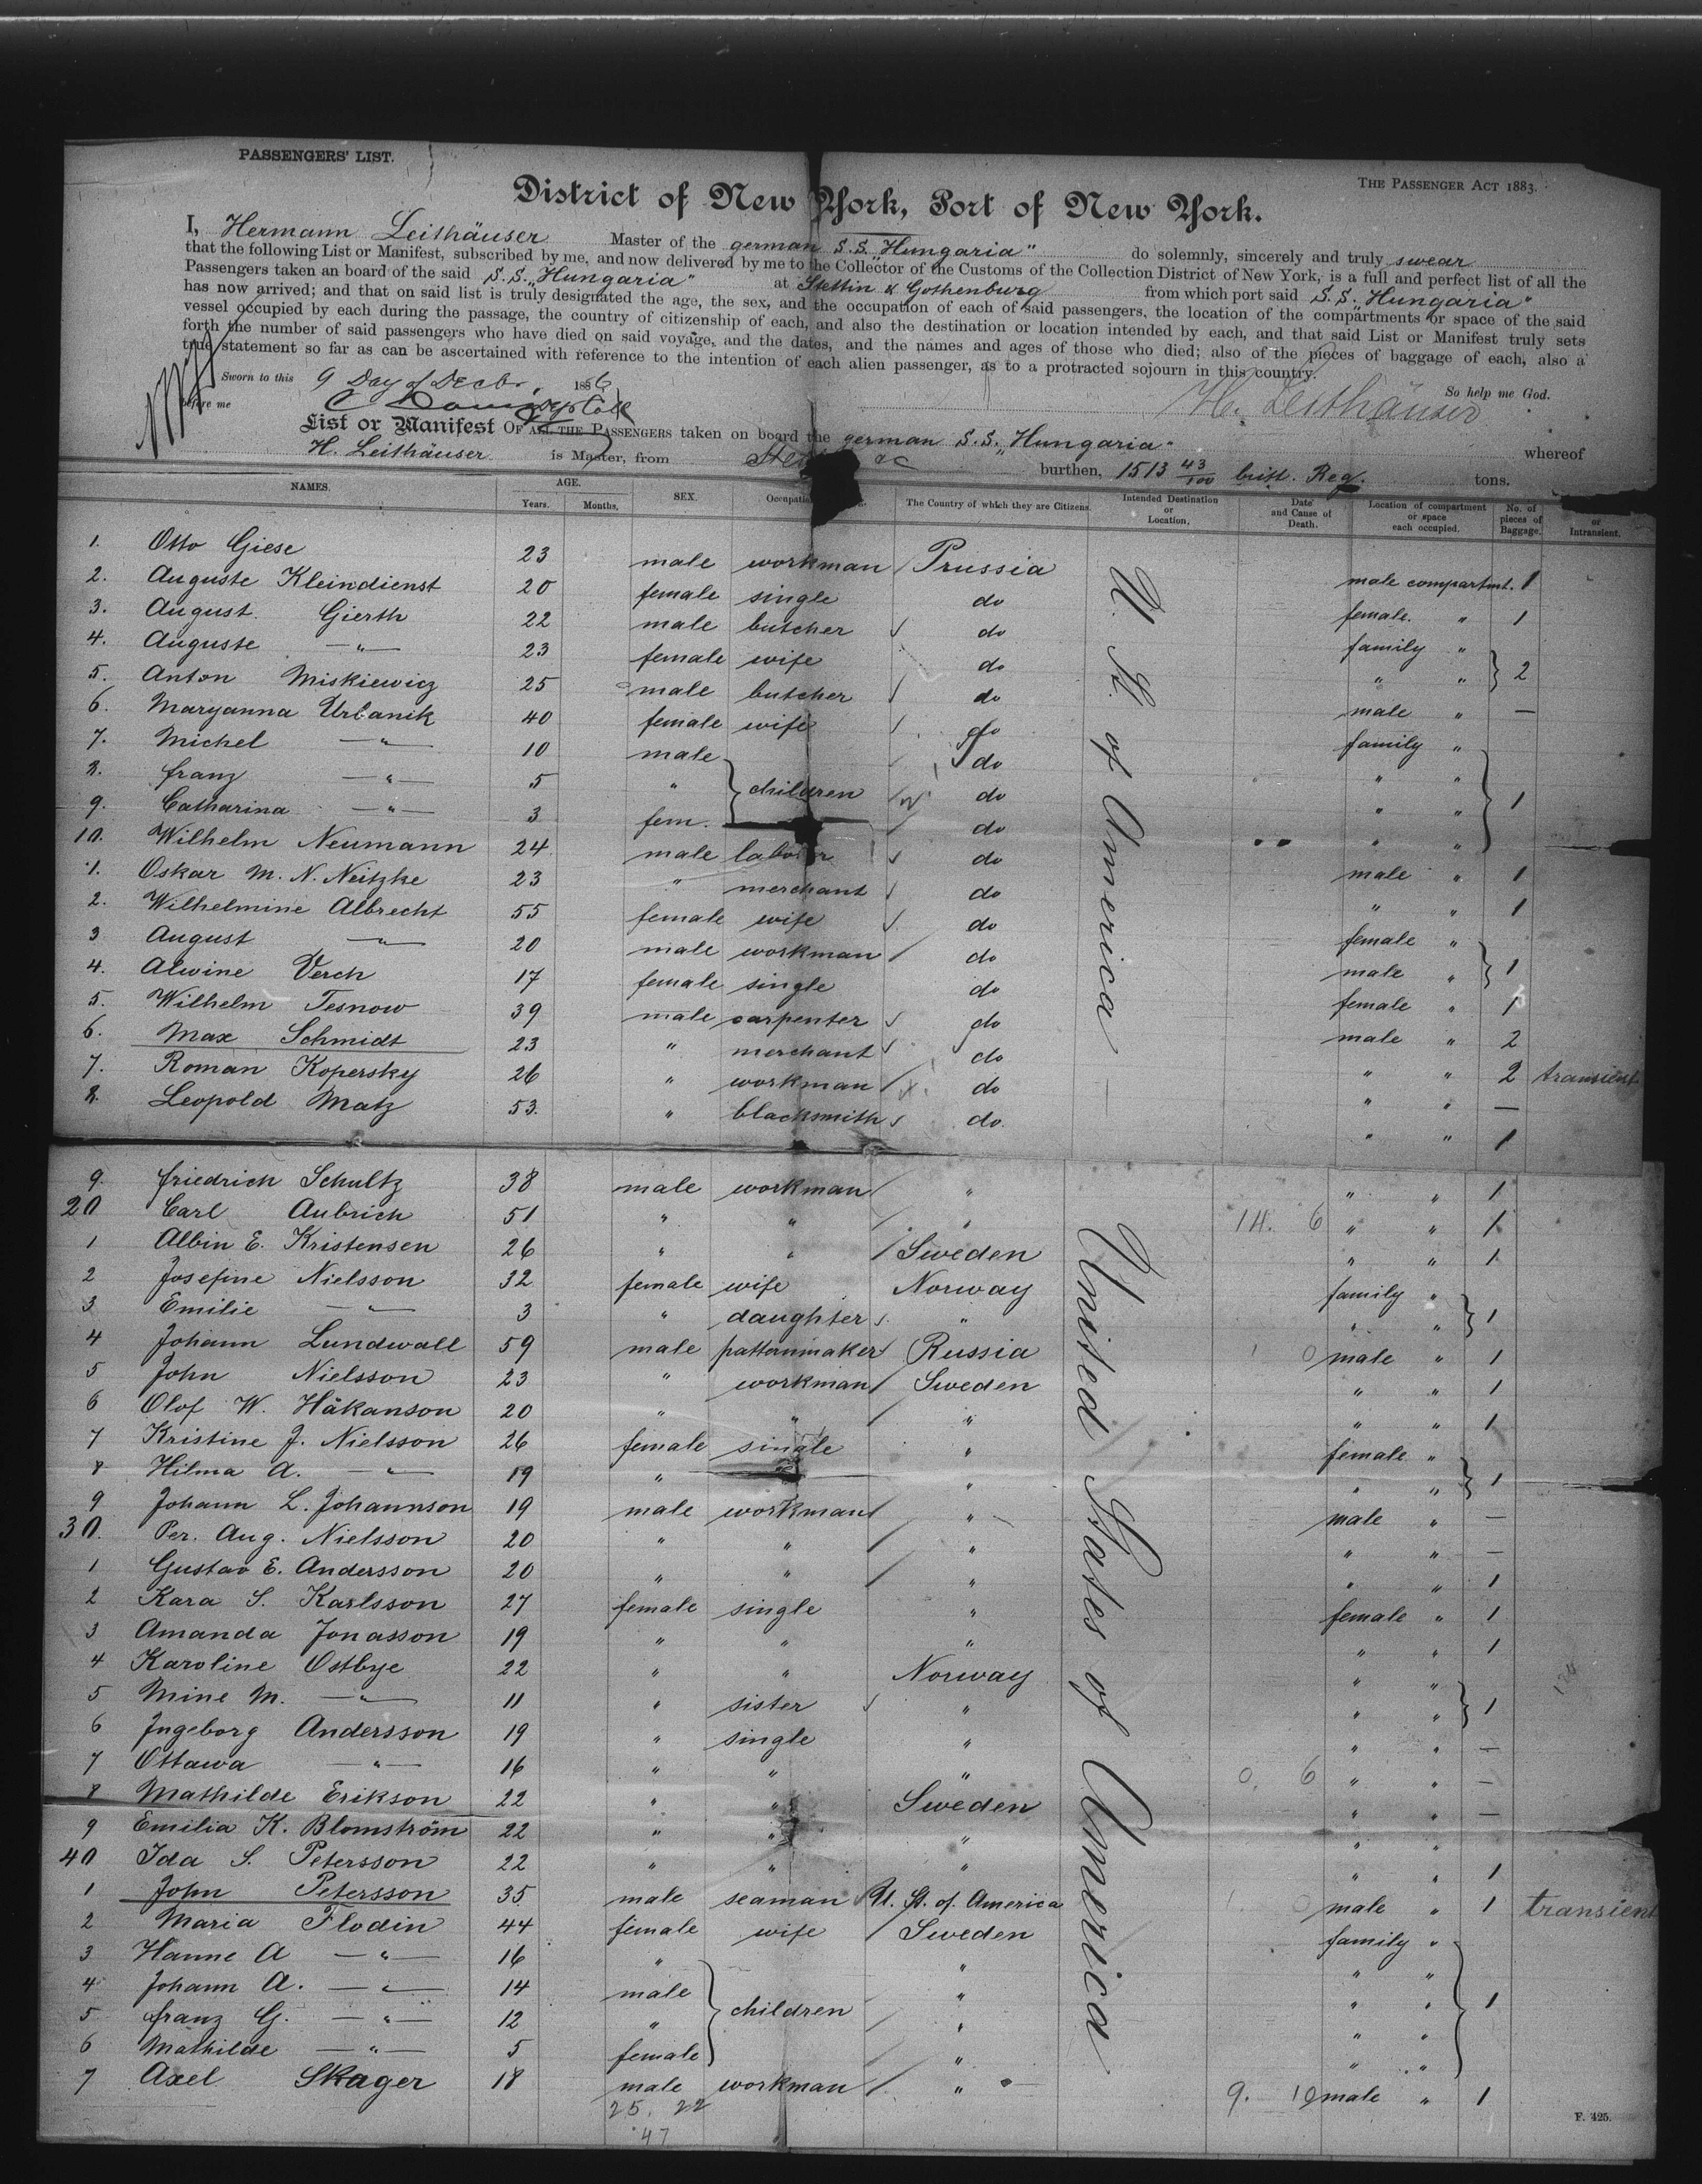 PASSENGERS' LIST.
THE PASSENGER ACT 1883.
District of New York, Port of New York.
I, Hermann Leithäuser Master of the german S.S. „Hungaria" do solemnly, sincerely and truly swear
that the following List or Manifest, subscribed by me, and now delivered by me to the Collector of the Customs of the Collection District of New York, is a full and perfect list of all the
Passengers taken an board of the said S.S. „Hungaria" at Stettin & Gothenburg from which port said S.S. „Hungaria"
has now arrived; and that on said list is truly designated the age, the sex, and the occupation of each of said passengers, the location of the compartments or space of the said
vessel occupied by each during the passage, the country of citizenship of each, and also the destination or location intended by each, and that said List or Manifest truly sets
forth the number of said passengers who have died on said voyage, and the dates, and the names and ages of those who died; also of the pieces of baggage of each, also a
true statement so far as can be ascertained with reference to the intention of each alien passenger, as to a protracted sojourn in this country.
Sworn to this 9 Day of Decbr. 1886 So help me God.
before me H. Leithäuser
List or Manifest OF ALL THE PASSENGERS taken on board the german S.S. „Hungaria" whereof
H. Leithäuser is Master, from burthen, 1513 43/100 britt. Reg. tons.
NAMES. AGE. Years. Months. SEX. The Country of which they are Citizens. Intended Destination or Location. Date and Cause of Death. Location of compartment or space each occupied. No. of pieces of Baggage. or Intransient.
1. Otto Giese 23 male workman Prussia male compartmt. 1
2. Auguste Kleindienst 20 female single do female. " 1
3. August Gierth 22 male butcher do family "
4. Auguste —"— 23 female wife do " " 2
5. Anton Miskiewicz 25 male butcher do male " —
6. Maryanna Urbanik 40 female wife do family "
7. Michel —"— 10 male do " "
8. franz —"— 5 " children do " " 1
9. Catharina —"— 3 fem. do " "
10. Wilhelm Neumann 24 male laborer do male " 1
1. Oskar M. N. Neitzke 23 " merchant do " " 1
2. Wilhelmine Albrecht 55 female wife do female "
3 August —"— 20 male workman do male " 1
4. Alwine Verch 17 female single do female " 1
5. Wilhelm Tesnow 39 male carpenter do male " 2
6. Max Schmidt 23 " merchant do " " 2 transient
7. Roman Kopersky 26 " workman do " " —
8. Leopold Matz 53. " blacksmith do " " 1
U. St. of America
9. friedrich Schultz 38 male workman " " " 1
20 Carl Aubrich 51 " " " 14. 6 " " 1
1 Albin E. Kristensen 26 " " Sweden " " 1
2 Josefine Nielsson 32 female wife Norway family "
3 Emilie —"— 3 " daughter " " " 1
4 Johann Lundwall 59 male patternmaker Russia 1 0 male " 1
5 John Nielsson 23 " workman Sweden " " 1
6 Olof W. Håkanson 20 " " " " " 1
7 Kristine J. Nielsson 26 female single " female "
8 Hilma A. —"— 19 " " " " 1
9 Johann L. Johannson 19 male workman " male " —
30. Per. Aug. Nielsson 20 " " " " " —
1 Gustav E. Andersson 20 " " " " " 1
2 Kara S. Karlsson 27 female single " female " 1
3 Amanda Jonasson 19 " " " " " 1
4 Karoline Ostbye 22 " " Norway " "
5 Mine M. —"— 11 " sister " " " 1
6 Ingeborg Andersson 19 " single " " " —
7 Ottawa —"— 16 " " " 0. 6 " " —
8 Mathilde Erikson 22 " " Sweden " " —
9 Emilia K. Blomström 22 " " " " "
40 Ida S. Petersson 22 " " " " " 1
1 John Petersson 35 male seaman U. St. of America male " 1 transient
2 Maria Flodin 44 female wife Sweden family "
3 Hanne A —"— 16 " " " "
4 Johann A. —"— 14 male " " " 1
5 franz G. —"— 12 " children " " "
6 Mathilde —"— 5 female " " "
7 Axel Skager 18 male workman " 9. 10 male " 1
United States of America
25. 22
47
F. 425.